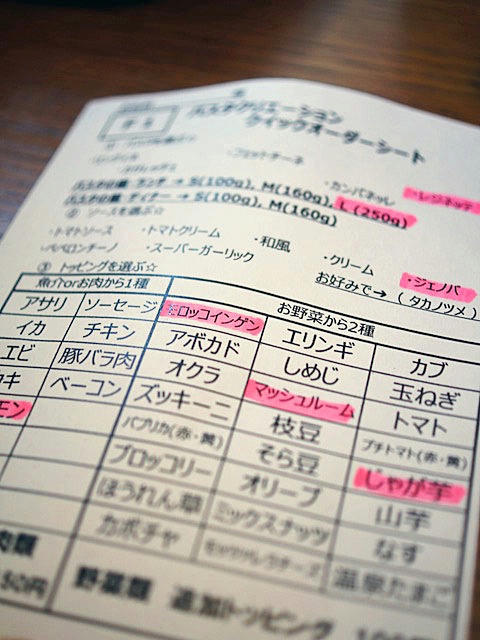 パスタクリエーション
クイックオーダーシート
・フェットチーネ
・カンパネッレ
・レジネッテ
ランチ → S(100g), M(160g), L(250g)
ディナー → S(100g), M(160g)
② ソースを選ぶ☆
・トマトソース ・トマトクリーム ・和風 ・クリーム ・ジェノバ
・ペペロンチーノ ・スーパーガーリック お好みで→ (タカノツメ)
③ トッピングを選ぶ☆
魚介orお肉から1種 お野菜から2種
アサリ ソーセージ モロッコインゲン エリンギ カブ
イカ チキン アボカド しめじ 玉ねぎ
エビ 豚バラ肉 オクラ マッシュルーム トマト
キ ベーコン ズッキーニ 枝豆 プチトマト(赤・黄)
モン パプリカ(赤・黄) そら豆 じゃが芋
ブロッコリー オリーブ 山芋
ほうれん草 ミックスナッツ なす
カボチャ モッツァレラチーズ 温泉たまご
肉類 野菜類 追加トッピング
50円